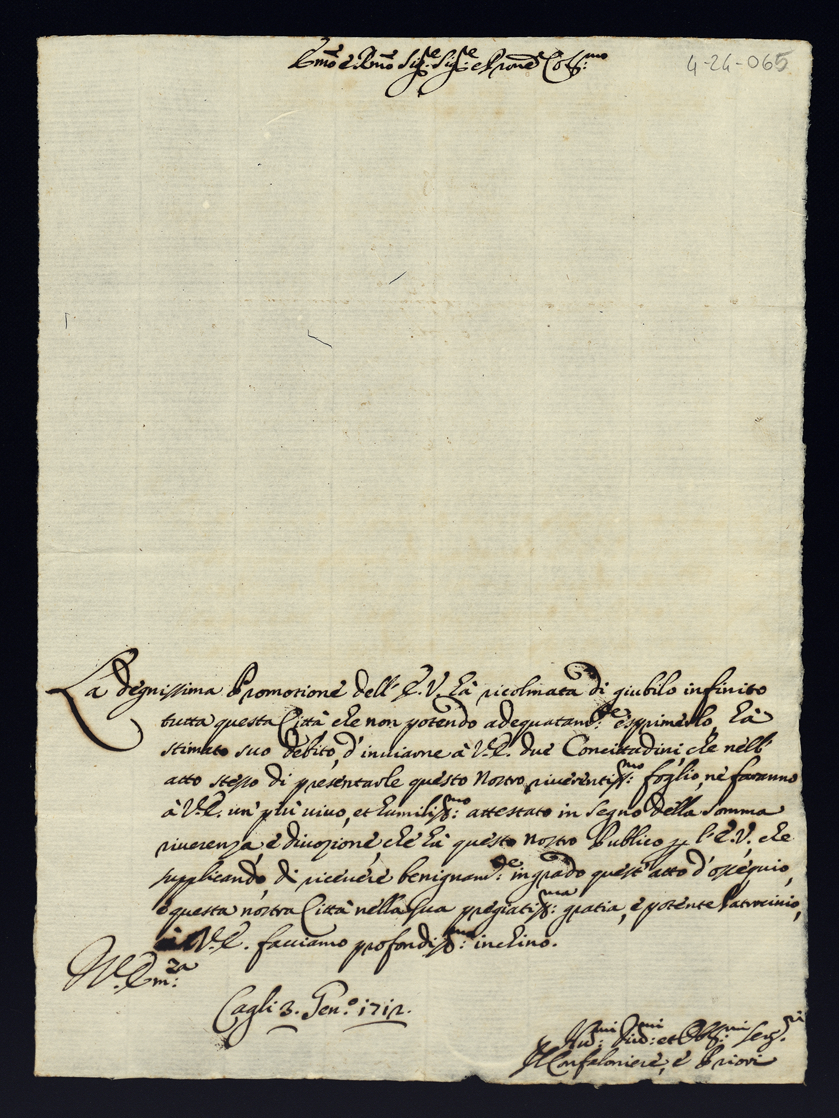 Em̃o e Rm̃o Sig.re Sig.re e Prone Col.mo
4-24-065
La degnissima Promotione dell' E. V. hà ricolmata di giubilo infinito
tutta questa Città che non potendo adequatam.te esprimerlo, hà
stimato suo debito, d'inuiarne à V. E. due Concittadini, che nell'
atto stesso di presentarle questo Nostro riuerentiss.mo foglio, ne faranno
à V. E. un' più uiuo, et humiliss.mo attestato in segno della somma
riuerenza e diuozione che hà questo nostro Publico p l' E. V., che
supplicando, di riceuere benignam.te in grado quest' atto d'ossequio,
e questa nostra Città nella sua pregiatiss.ma gratia, e potente Patrocinio,
à V. E. facciamo profondiss.mo inchino.
V. Em.za
Cagli 3. Gen.o 1712.
Hu.mi Diu.mi et Obl.mi Ser.ri
Il Confaloniere, e Priori